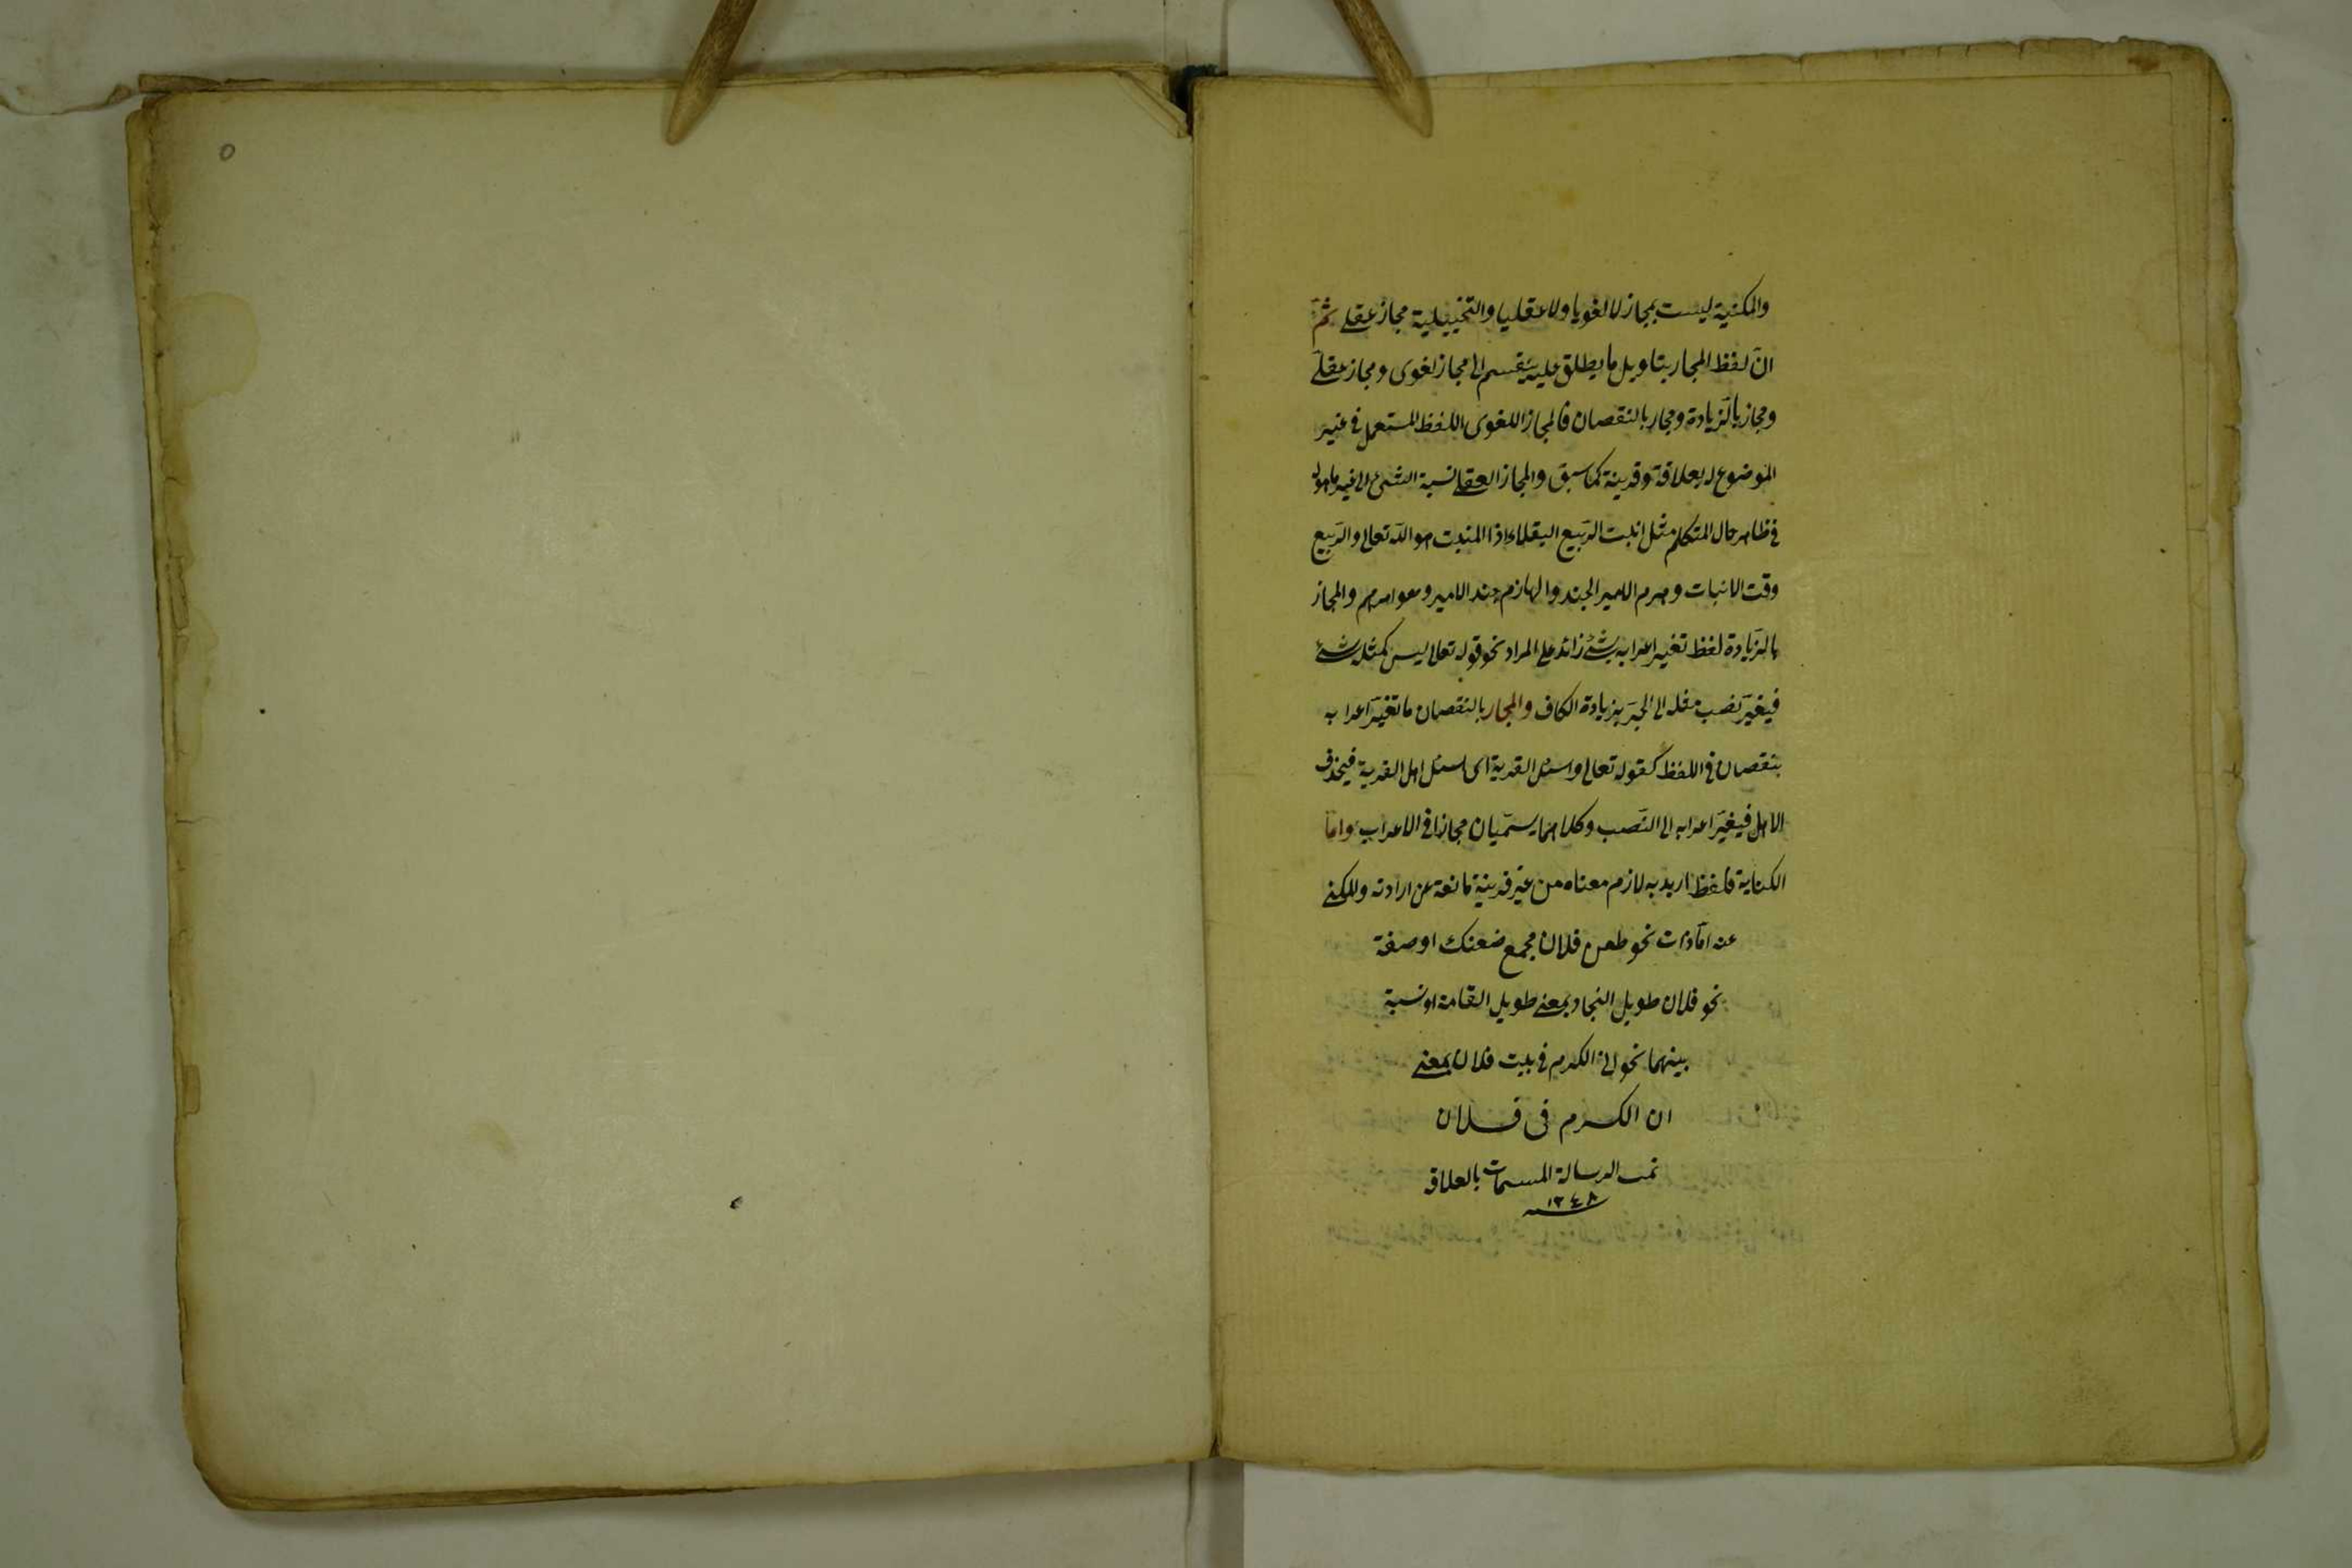 والمكنية ليست بمجاز لا لغويا ولا عقليا والتخييلية مجاز عقلے ثمّ
انّ لفظ المجار بتاويل ما يطلق عليه ينقسم الى مجاز لغوى ومجاز عقلے
ومجاز بالزّيادة ومجار بالنقصان فالمجاز اللغوى اللفظ المستعمل فى غير
الموضوع له بعلاقة وقرينة كما سبق والمجاز العقلے نسبة الشئ الى غير ما هو له
فى ظاهر حال المتكلم مثل انبت الربيع البقل اذا المنبت هو الله تعالى والربيع
وقت الانبات وهزم الامير الجند والهازم جند الامير وهو امرهم والمجاز
بالزّيادة لفظ تغير اعرابه بشئ زائد على المراد نحو قوله تعالى ليس كمثله شئ
فيغيّر نصب مثله الى الجرّ بزيادة الكاف والمجار بالنقصان ما تغيّر اعرابه
بنقصان فى اللفظ كقوله تعالى واسئل القرية اى اسئل اهل القرية فيحذف
الاهل فيغيّر اعرابه الى النّصب وكلاهما يسمّيان مجازا فى الاعراب وامّا
الكناية فلفظ اريد به لازم معناه من غير قرينة مانعة عن ارادته والمكنى
عنه امّا ذات نحو طعن فلان مجمع ضعنك او صفة
نحو فلان طويل النجاد بمعنے طويل القامة او نسبة
بينهما نحو ان الكرم فى بيت فلان بمعنے
ان الكرم فى فلان
تمت الرسالة المسمات بالعلاقه
١٢٤٨
٥